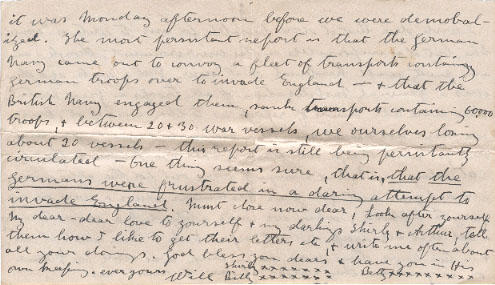 it was Monday afternoon before we were demobil-
ized. The most persistent report is that the German
Navy came out to convoy a fleet of transports containing
German troops over to invade England — & that the
British Navy engaged them, sunk transports containing 60000
troops, & between 20 & 30 war vessels, we ourselves losing
about 20 vessels — this report is still being persistently
circulated — One thing seems sure, that is, that the
Germans were frustrated in a daring attempt to
invade England. Must close now dear, Look after yourself
My dear - dear love to yourself & my darlings Shirly & Arthur, tell
them how I like to get their letters etc, & write me often about
all your doings. God bless you dears & have you in His
own keeping. ever yours Shirly xxxxxxxx
Will Billy xxxxxxx Betty xxxxxxxx